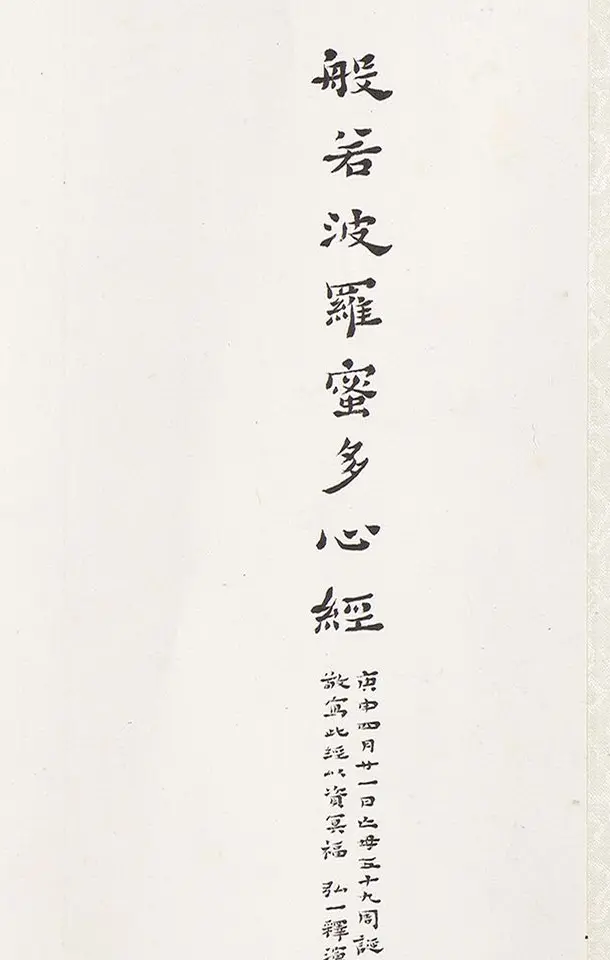 般若波羅蜜多心經
庚申四月廿一日亡母五十九周誕
敬寫此經以資冥福 弘一釋演